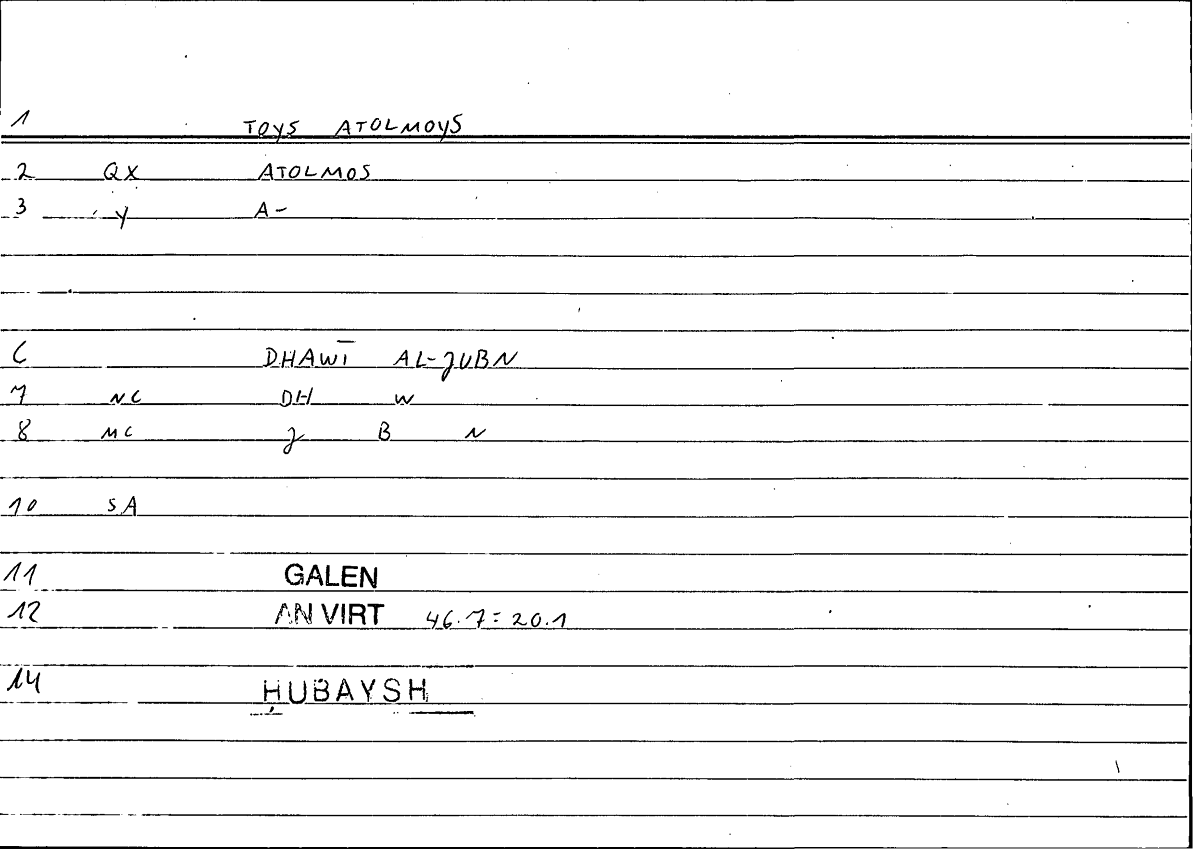 1 TOYS ATOLMOYS
2 QX ATOLMOS
3 Y A-
6 DHAWĪ AL-JUBN
7 NC DH W
8 MC J B N
10 SA
11 GALEN
12 AN VIRT 46.7=20.1
14 ḤUBAYSH